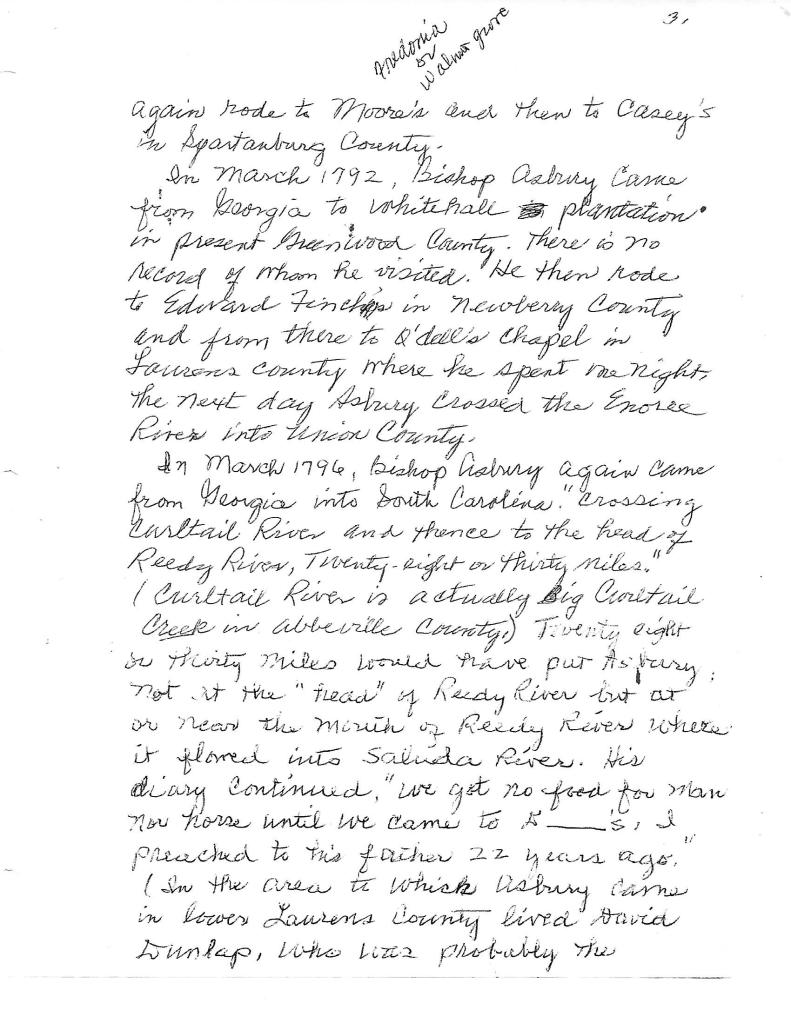 3.
Fredonia
or
Walnut grove
again rode to Moore's and then to Casey's
in Spartanburg County.
In March 1792, Bishop Asbury came
from Georgia to Whitehall plantation
in present Greenwood County. There is no
record of whom he visited. He then rode
to Edward Finch's in Newberry County
and from there to O'dell's chapel in
Laurens county where he spent one night.
The next day Asbury crossed the Enoree
River into Union County.
In March 1796, Bishop Asbury again came
from Georgia into South Carolina. "Crossing
Curltail River and thence to the head of
Reedy River, Twenty-eight or thirty miles."
(Curltail River is actually Big Curltail
Creek in Abbeville County.) Twenty eight
or thirty miles would have put Asbury
not at the "head" of Reedy River but at
or near the mouth of Reedy River where
it flowed into Saluda River. His
diary continued, "We got no food for man
nor horse until we came to D____'s, I
preached to his father 22 years ago."
(In the area to which Asbury came
in lower Laurens County lived David
Dunlap, who was probably the